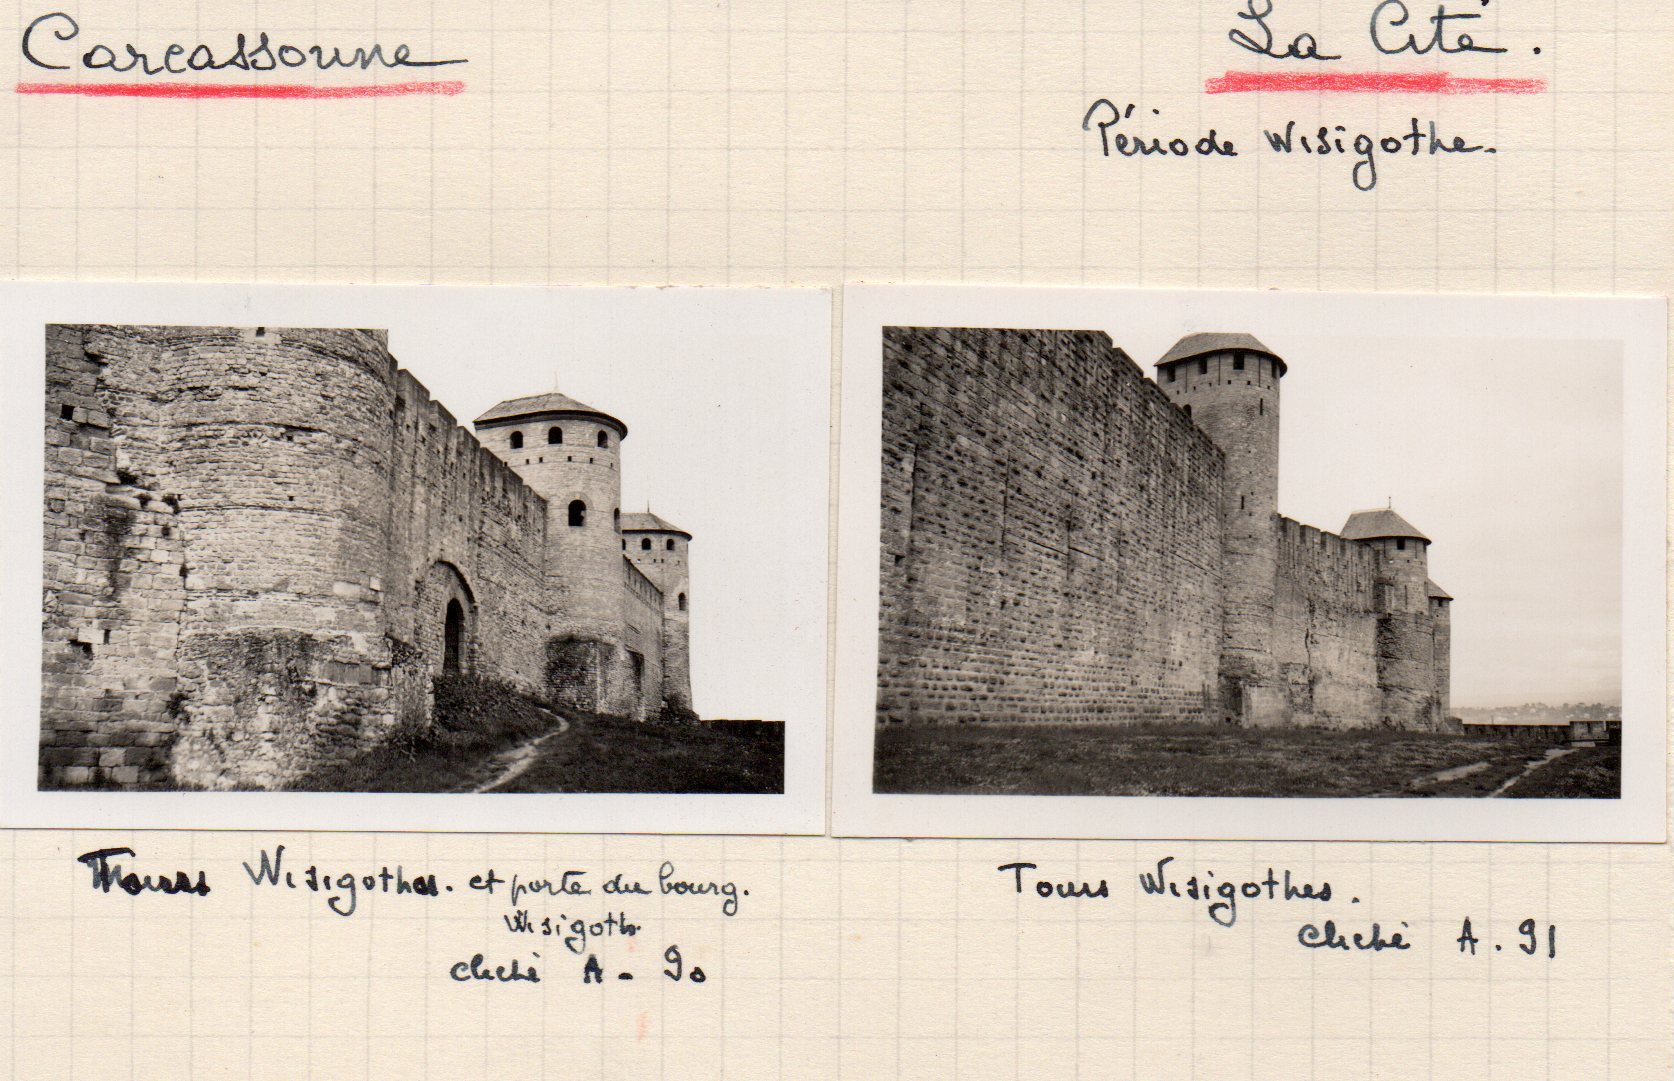 Carcassonne
La Cité.
Période Wisigothe.
Tours Wisigothes. et porte du bourg.
Wisigoth.
cliché A - 90
Tours Wisigothes.
cliché A . 91